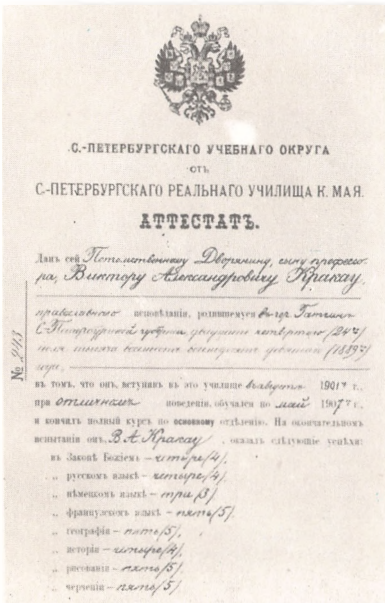 С.-ПЕТЕРБУРГСКАГО УЧЕБНАГО ОКРУГА
ОТЪ
С.-ПЕТЕРБУРГСКАГО РЕАЛЬНАГО УЧИЛИЩА К. МАЯ.
АТТЕСТАТЪ.
Данъ сей Потомственному Дворянину, сыну професо-
ра, Виктору Александровичу Кракау,
православнаго исповѣданія, родившемуся въ гор. Гатчинѣ
С-Петербургской губерніи двадцать четвертаго (24го)
тысяча восемьсотъ восемьдесятъ девятаго (1889го)
года,
№ 243
въ томъ, что онъ, вступивъ въ это училище въ августѣ 1901 г.,
при отличномъ поведеніи, обучался по май 1907 г.
и кончилъ полный курсъ по основному отдѣленію. На окончательномъ
испытаніи онъ, В. А. Кракау, оказалъ слѣдующіе успѣхи:
въ Законѣ Божіемъ – четыре (4),
„ русскомъ языкѣ – четыре (4),
„ нѣмецкомъ языкѣ – три (3)
„ французскомъ языкѣ – пять (5),
„ географіи – пять (5),
„ исторіи – четыре (4),
„ рисованіи – пять (5),
„ черченіи – пять (5),